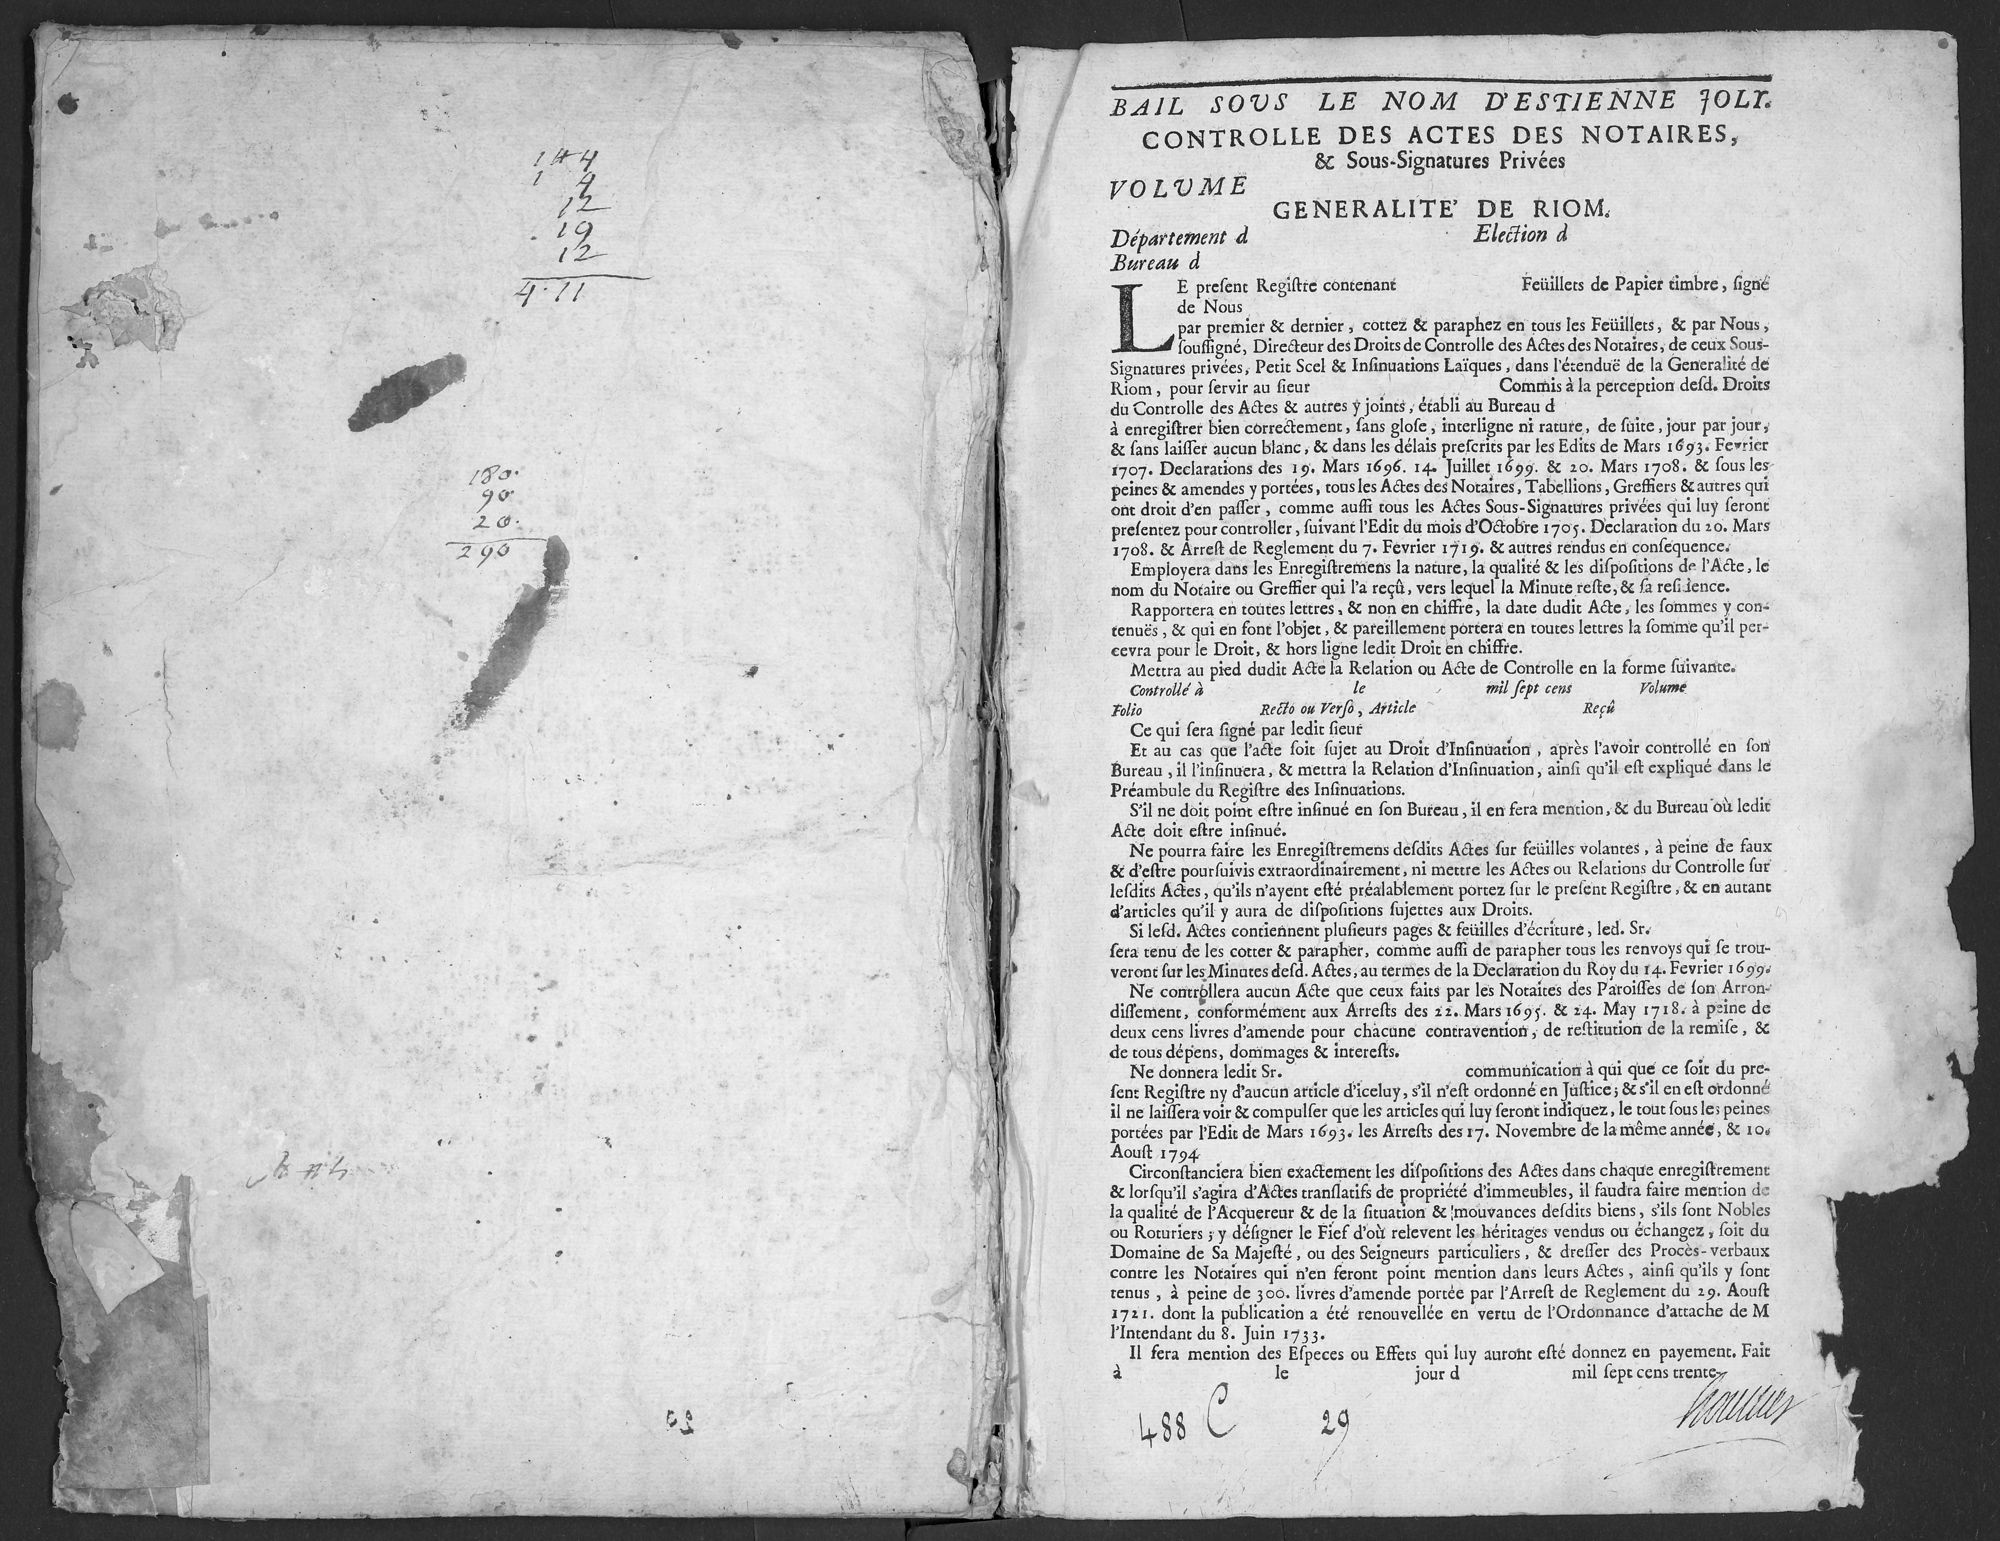 1ᵗᵗ 4
1 4
12
19
12
4. 11
180.
90.
20.
290
BAIL SOUS LE NOM D'ESTIENNE JOLY.
CONTROLLE DES ACTES DES NOTAIRES,
& Sous-Signatures Privées
VOLUME
GENERALITE' DE RIOM.
Département d Election d
Bureau d
LE preſent Regiſtre contenant Feüillets de Papier timbre, ſigné
de Nous
par premier & dernier, cottez & paraphez en tous les Feüillets, & par Nous,
ſouſſigné, Directeur des Droits de Controlle des Actes des Notaires, de ceux Sous-
Signatures privées, Petit Scel & Inſinuations Laïques, dans l'étenduë de la Generalité de
Riom, pour ſervir au ſieur Commis à la perception deſd. Droits
du Controlle des Actes & autres y joints, établi au Bureau d
à enregiſtrer bien correctement, ſans gloſe, interligne ni rature, de ſuite, jour par jour,
& ſans laiſſer aucun blanc, & dans les délais preſcrits par les Edits de Mars 1693. Fevrier
1707. Declarations des 19. Mars 1696. 14. Juillet 1699. & 20. Mars 1708. & ſous les
peines & amendes y portées, tous les Actes des Notaires, Tabellions, Greffiers & autres qui
ont droit d'en paſſer, comme auſſi tous les Actes Sous-Signatures privées qui luy ſeront
preſentez pour controller, ſuivant l'Edit du mois d'Octobre 1705. Declaration du 20. Mars
1708. & Arreſt de Reglement du 7. Fevrier 1719. & autres rendus en conſequence.
Employera dans les Enregiſtremens la nature, la qualité & les diſpoſitions de l'Acte, le
nom du Notaire ou Greffier qui l'a reçû, vers lequel la Minute reſte, & ſa reſidence.
Rapportera en toutes lettres, & non en chiffre, la date dudit Acte, les ſommes y con-
tenuës, & qui en font l'objet, & pareillement portera en toutes lettres la ſomme qu'il per-
cevra pour le Droit, & hors ligne ledit Droit en chiffre.
Mettra au pied dudit Acte la Relation ou Acte de Controlle en la forme ſuivante.
Controllé à le mil ſept cens Volume
Folio Recto ou Verſo, Article Reçû
Ce qui ſera ſigné par ledit ſieur
Et au cas que l'acte ſoit ſujet au Droit d'Inſinuation, après l'avoir controllé en ſon
Bureau, il l'inſinuera, & mettra la Relation d'Inſinuation, ainſi qu'il eſt expliqué dans le
Préambule du Regiſtre des Inſinuations.
S'il ne doit point eſtre inſinué en ſon Bureau, il en fera mention, & du Bureau où ledit
Acte doit eſtre inſinué.
Ne pourra faire les Enregiſtremens deſdits Actes ſur feüilles volantes, à peine de faux
& d'eſtre pourſuivis extraordinairement, ni mettre les Actes ou Relations du Controlle ſur
leſdits Actes, qu'ils n'ayent eſté préalablement portez ſur le preſent Regiſtre, & en autant
d'articles qu'il y aura de diſpoſitions ſujettes aux Droits.
Si leſd. Actes contiennent pluſieurs pages & feüilles d'écriture, led. Sr.
ſera tenu de les cotter & parapher, comme auſſi de parapher tous les renvoys qui ſe trou-
veront ſur les Minutes deſd. Actes, au termes de la Declaration du Roy du 14. Fevrier 1699.
Ne controllera aucun Acte que ceux faits par les Notaites des Paroiſſes de ſon Arron-
diſſement, conformément aux Arreſts des 22. Mars 1695. & 24. May 1718. à peine de
deux cens livres d'amende pour chacune contravention, de reſtitution de la remiſe, &
de tous dépens, dommages & intereſts.
Ne donnera ledit Sr. communication à qui que ce ſoit du pre-
ſent Regiſtre ny d'aucun article d'iceluy, s'il n'eſt ordonné en Juſtice; & s'il en eſt ordonné
il ne laiſſera voir & compulſer que les articles qui luy ſeront indiquez, le tout ſous les peines
portées par l'Edit de Mars 1693. les Arreſts des 17. Novembre de la même année, & 10.
Aouſt 1794
Circonſtanciera bien exactement les diſpoſitions des Actes dans chaque enregiſtrement
& lorſqu'il s'agira d'Actes tranſlatifs de propriété d'immeubles, il faudra faire mention de
la qualité de l'Acquereur & de la ſituation & mouvances deſdits biens, s'ils ſont Nobles
ou Roturiers; y déſigner le Fief d'où relevent les héritages vendus ou échangez, ſoit du
Domaine de Sa Majeſté, ou des Seigneurs particuliers, & dreſſer des Procès-verbaux
contre les Notaires qui n'en feront point mention dans leurs Actes, ainſi qu'ils y ſont
tenus, à peine de 300. livres d'amende portée par l'Arreſt de Reglement du 29. Aouſt
1721. dont la publication a été renouvellée en vertu de l'Ordonnance d'attache de M
l'Intendant du 8. Juin 1733.
Il fera mention des Eſpeces ou Effets qui luy auront eſté donnez en payement. Fait
à le jour d mil ſept cens trente
488 C 29